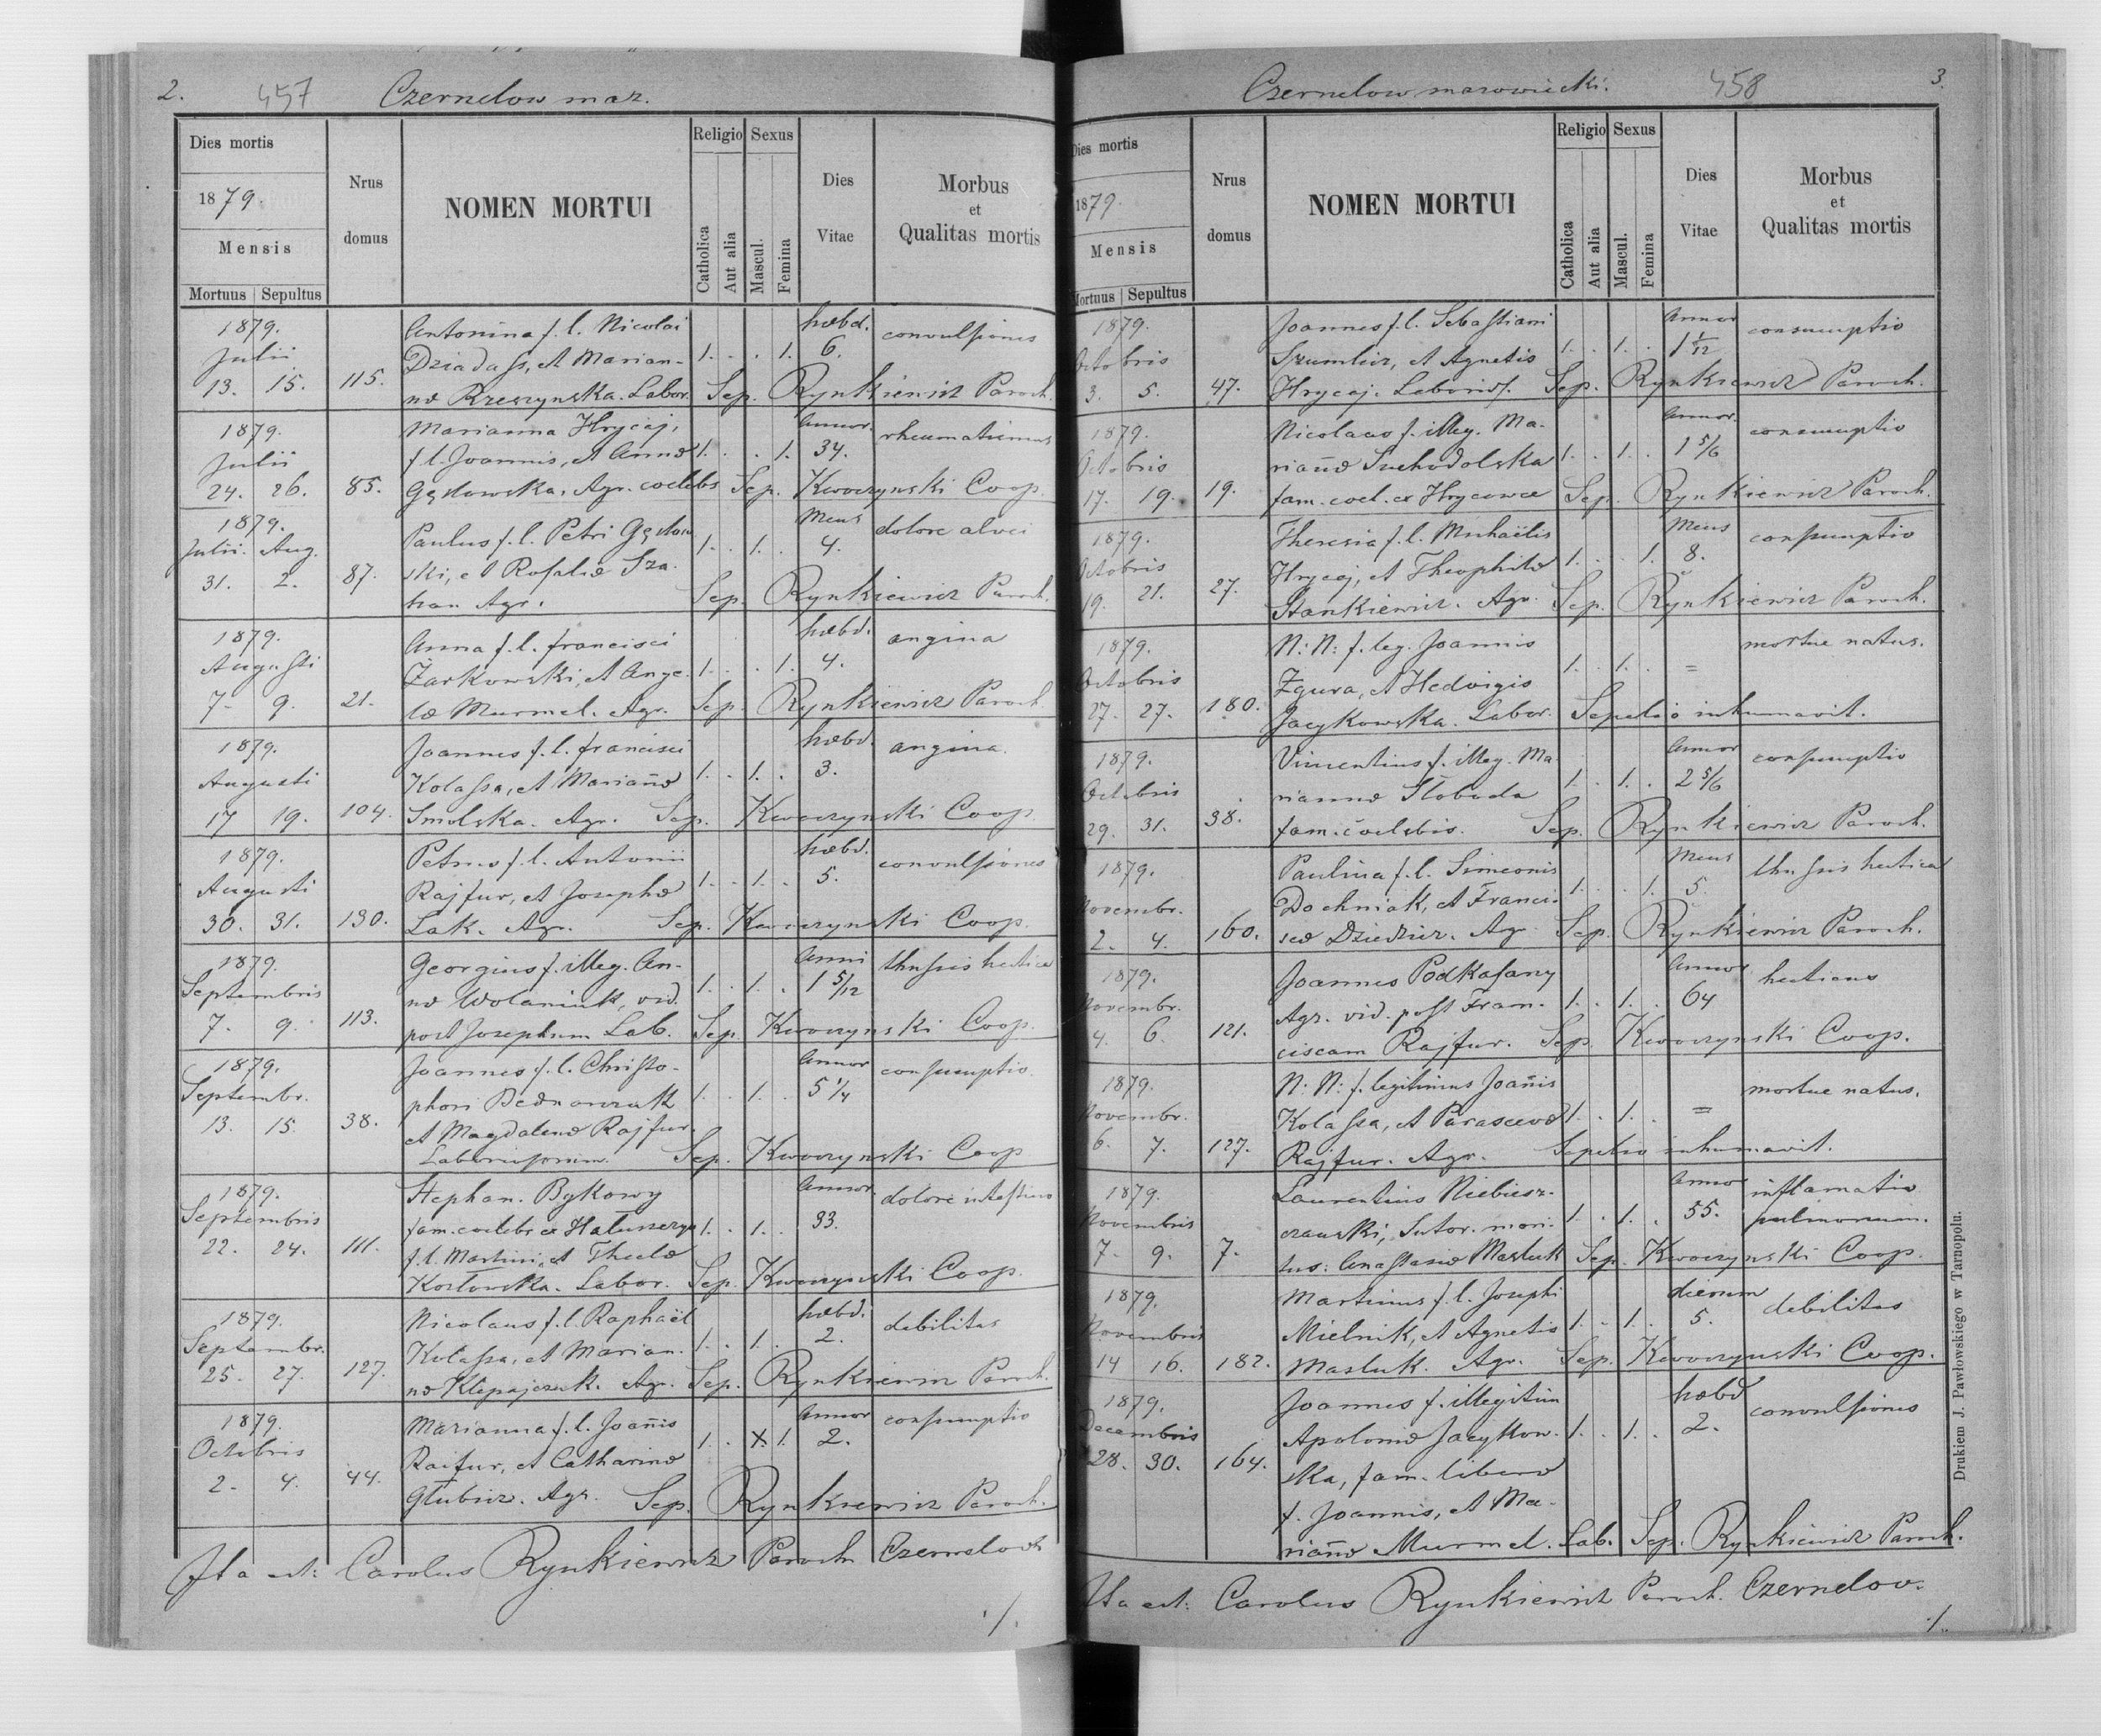 2. 457 Czernelow maz.
Dies mortis
1879.
Mensis
Mortuus Sepultus
Nrus domus
NOMEN MORTUI
Religio
Catholica
Aut alia
Sexus
Mascul.
Femina
Dies Vitae
Morbus et Qualitas mortis
1879. Antonina f. l. Nicolai hæbd. convulsiones
Julii Dziadass, et Marian- 1. . . 1. 6.
13. 15. 115. næ Rzeszynska. Labor. Sep. Rynkiewicz Paroch.
1879. Marianna Hrycaj, Annor. rheumatismus
Julii f l. Joannis, et Annæ 1. . . 1. 34.
24. 26. 85. Gęstowska. Agr. coelebs Sep. Kwoczynski Coop.
1879. Paulus f. l. Petri Gęstow Mens dolore alvei
Julii. Aug. ski, et Rosaliæ Sza- 1. . 1. . 4.
31. 2. 87. han Agr. Sep. Rynkiewicz Paroch.
1879. Anna f. l. francisci hæbd. angina
Augusti Żarkowski, et Ange- 1. . . 1. 4.
7. 9. 21. læ Murmel. Agr. Sep. Rynkiewicz Paroch.
1879. Joannes f. l. francisci hæbd. angina.
Augusti Kolassa, et Mariañæ 1. . 1. . 3.
17 19. 104. Smolska. Agr. Sep. Kwoczynski Coop.
1879. Petrus f. l. Antonii hæbd. convulsiones
Augusti Rajfur, et Josephæ 1. . 1. . 5.
30. 31. 130. Lak. Agr. Sep. Kwoczynski Coop.
1879. Georgius f. illeg. An- Anni thussis hectica
Septembris næ Wolaniuk, vid. 1. . 1. . 1 5/12
7. 9. 113. post Josephum Lab. Sep. Kwoczynski Coop.
1879. Joannes f. l. Christo- Annor consumptio.
Septembr. phori Bednarczuk 1. . 1. . 5 1/4
13. 15. 38. et Magdalenæ Rajfur.
Sep. Kwoczynski Coop
1879. Stephan. Bykowy Annor. dolore intestino
Septembris fam. coelebs ex 1. . 1. . 33.
22. 24. 111. f. l. Martini, et Theclæ
Kozlowska. Labor. Sep. Kwoczynski Coop.
1879. Nicolaus f. l. Raphaël hæbd. debilitas
Septembr. Kolassa, et Marian- 1. . 1. . 2.
25. 27. 127. næ Klepajczuk. Agr. Sep. Rynkiewicz Paroch.
1879. Marianna f. l. Joañis Annor consumptio
Octobris Raifur, et Catharinæ 1. . X. 1. 2.
2. 4. 44. Głubisz. Agr. Sep. Rynkiewicz Paroch.
Ita est: Carolus Rynkiewicz Paroch Czernelov
./.
Czernelow mazowiecki. 458 3.
Dies mortis
1879.
Mensis
Mortuus Sepultus
Nrus domus
NOMEN MORTUI
Religio
Catholica
Aut alia
Sexus
Mascul.
Femina
Dies Vitae
Morbus et Qualitas mortis
1879. Joannes f. l. Sebastiani Annor consumptio
Octobris Szumlicz, et Agnetis 1. . 1. . 1 1/12
3. 5. 47. Hrycaj. Sep. Rynkiewicz Paroch.
1879. Nicolaus f. illeg. Ma- Annor. consumptio
Octobris riañæ Suchodolska 1. . 1. . 1 5/6
17. 19. 19. fam. coel. ex Hrycowce Sep. Rynkiewicz Paroch.
1879. Theresia f. l. Michaëlis Mens consumptio
Octobris Hrycaj, et Theophilæ 1. . . 1. 8.
19. 21. 27. Stankiewicz. Agr. Sep. Rynkiewicz Paroch.
1879. N: N: f. leg. Joannis mortue natus.
Octobris Zgura, et Hedvigis 1. . 1. . =
27. 27. 180. Jacykowska. Labor. Sepelio inhumavit.
1879. Vincentius f. illeg. Ma- Annor consumptio
Octobris riannæ Słoboda 1. . 1. . 2 5/6
29. 31. 38. fam. coelebis. Sep. Rynkiewicz Paroch.
1879. Paulina f. l. Simeonis Mens thussis hectica
Novembr. Dochniak, et Francis- 1. . . 1. 5.
2. 4. 160. scæ Dziedzic. Agr. Sep. Rynkiewicz Paroch.
1879. Joannes Podkasany Annor hecticus
Novembr. Agr. vid. post Fran- 1. . 1. . 64
4. 6. 121. ciscam Rajfur. Sep. Kwoczynski Coop.
1879. N: N: f. legitimus Joañis mortue natus.
Novembr. Kolassa, et Parascevæ 1. . 1. . =
6. 7. 127. Rajfur. Agr. Sepelio inhumavit.
1879. Laurentius Niebiesz- Annor inflamatio
Novembris czanski, Sutor. mari- 1. . 1. . 55. pulmonum.
7. 9. 7. tus: Anastasiæ Masluk Sep. Kwoczynski Coop.
1879. Martinus f. l. Josephi dierum debilitas
Novembris Mielnik, et Agnetis 1. . 1. . 5.
14 16. 182. Masluk. Agr. Sep. Kwoczynski Coop.
1879. Joannes f. illegitim hæbd convulsiones
Decembris Apoloniæ Jacykow- 1. . 1. . 2.
28. 30. 164. ska, fam. liberæ
f. Joannis, et Ma-
riañæ Murmel. Lab. Sep. Rynkiewicz Paroch.
Ita est: Carolus Rynkiewicz Paroch. Czernelov.
./.
Drukiem J. Pawłowskiego w Tarnopolu.